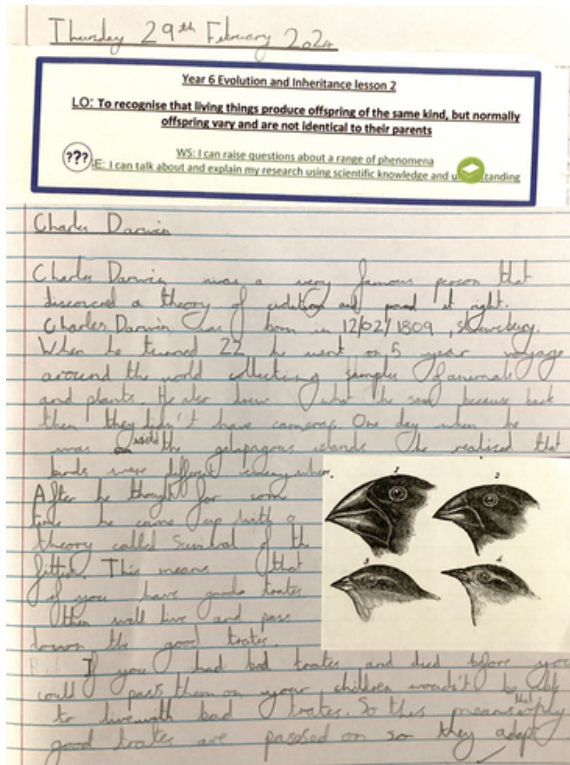 Thursday 29th February 2024
Year 6 Evolution and Inheritance lesson 2
LO: To recognise that living things produce offspring of the same kind, but normally
offspring vary and are not identical to their parents
???
WS: I can raise questions about a range of phenomena
E: I can talk about and explain my research using scientific knowledge and u tanding
Charles Darwin
Charles Darwin was a very famous person that
discovered a theory of evolution and it right.
Charles Darwin was born in 12/02/1809,
When he turned 22 he went on 5 year voyage
around the world collecting samples of animals
and plants. He also drew what he saw because back
then they didn't have cameras. One day when he
was the galapagous islands he realised that
birds were different
1
2
After he thought for som
time he came up with a
theory called Survival of the
fittest. This means that
3
4
if you have goods trates
then will live and pass
down the good trates.
If you had bad trates and died before you
could pass them on your children to
to live with bad trates. So this means that only
good trates are passed on so they adept